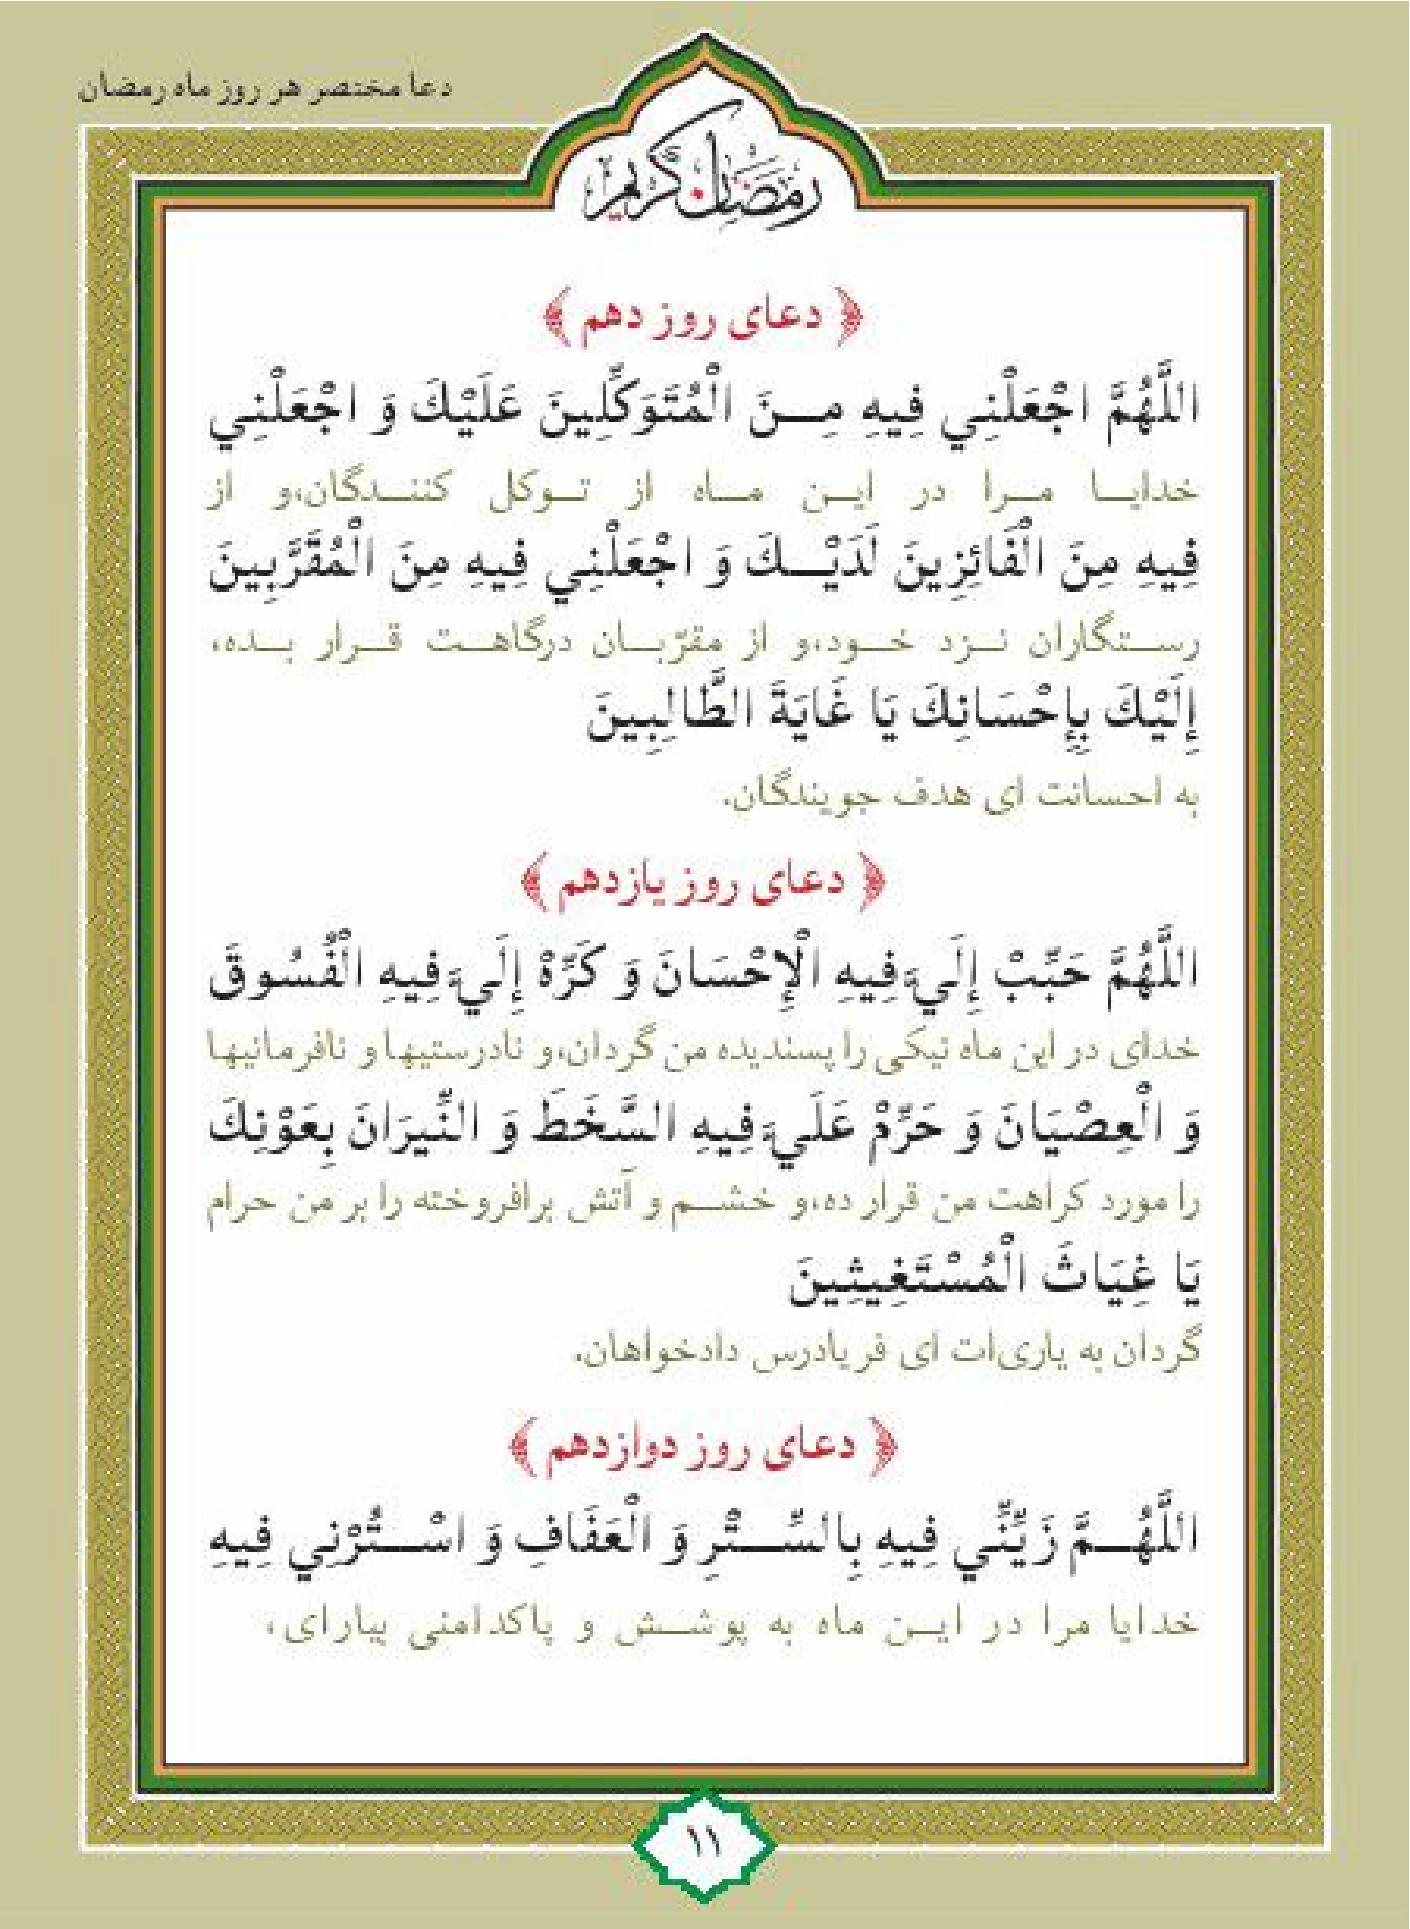 دعا مختصر هر روز ماه رمضان
رمضان كريم
﴿ دعای روز دهم ﴾
اللَّهُمَّ اجْعَلْنِي فِيهِ مِنَ الْمُتَوَكِّلِينَ عَلَيْكَ وَ اجْعَلْنِي
خدایا مرا در این ماه از توکل کنندگان،و از
فِيهِ مِنَ الْفَائِزِينَ لَدَيْكَ وَ اجْعَلْنِي فِيهِ مِنَ الْمُقَرَّبِينَ
رستگاران نزد خود،و از مقرّبان درگاهت قرار بده،
إِلَيْكَ بِإِحْسَانِكَ يَا غَايَةَ الطَّالِبِينَ
به احسانت ای هدف جویندگان.
﴿ دعای روز یازدهم ﴾
اللَّهُمَّ حَبِّبْ إِلَيَّ فِيهِ الْإِحْسَانَ وَ كَرِّهْ إِلَيَّ فِيهِ الْفُسُوقَ
خدای در این ماه نیکی را پسندیده من گردان،و نادرستیها و نافرمانیها
وَ الْعِصْيَانَ وَ حَرِّمْ عَلَيَّ فِيهِ السَّخَطَ وَ النِّيرَانَ بِعَوْنِكَ
را مورد کراهت من قرار ده،و خشم و آتش برافروخته را بر من حرام
يَا غِيَاثَ الْمُسْتَغِيثِينَ
گردان به یاری‌ات ای فریادرس دادخواهان.
﴿ دعای روز دوازدهم ﴾
اللَّهُمَّ زَيِّنِّي فِيهِ بِالسِّتْرِ وَ الْعَفَافِ وَ اسْتُرْنِي فِيهِ
خدایا مرا در این ماه به پوشش و پاکدامنی بیارای،
۱۱